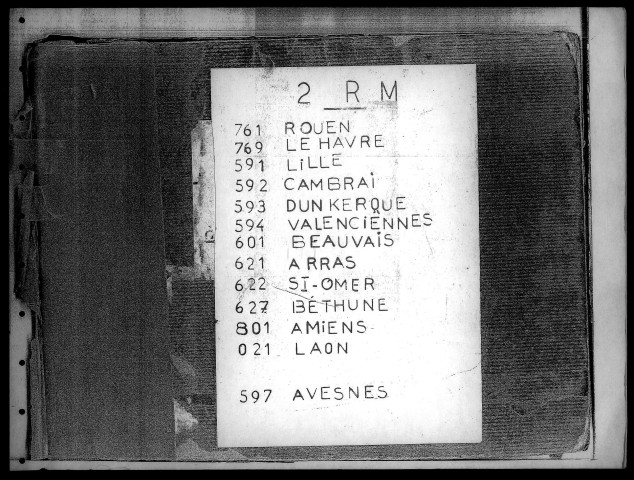 2 R M
761 ROUEN
769 LE HAVRE
591 LILLE
592 CAMBRAI
593 DUNKERQUE
594 VALENCIENNES
601 BEAUVAIS
621 ARRAS
622 ST-OMER
627 BÉTHUNE
801 AMIENS
021 LAON
597 AVESNES